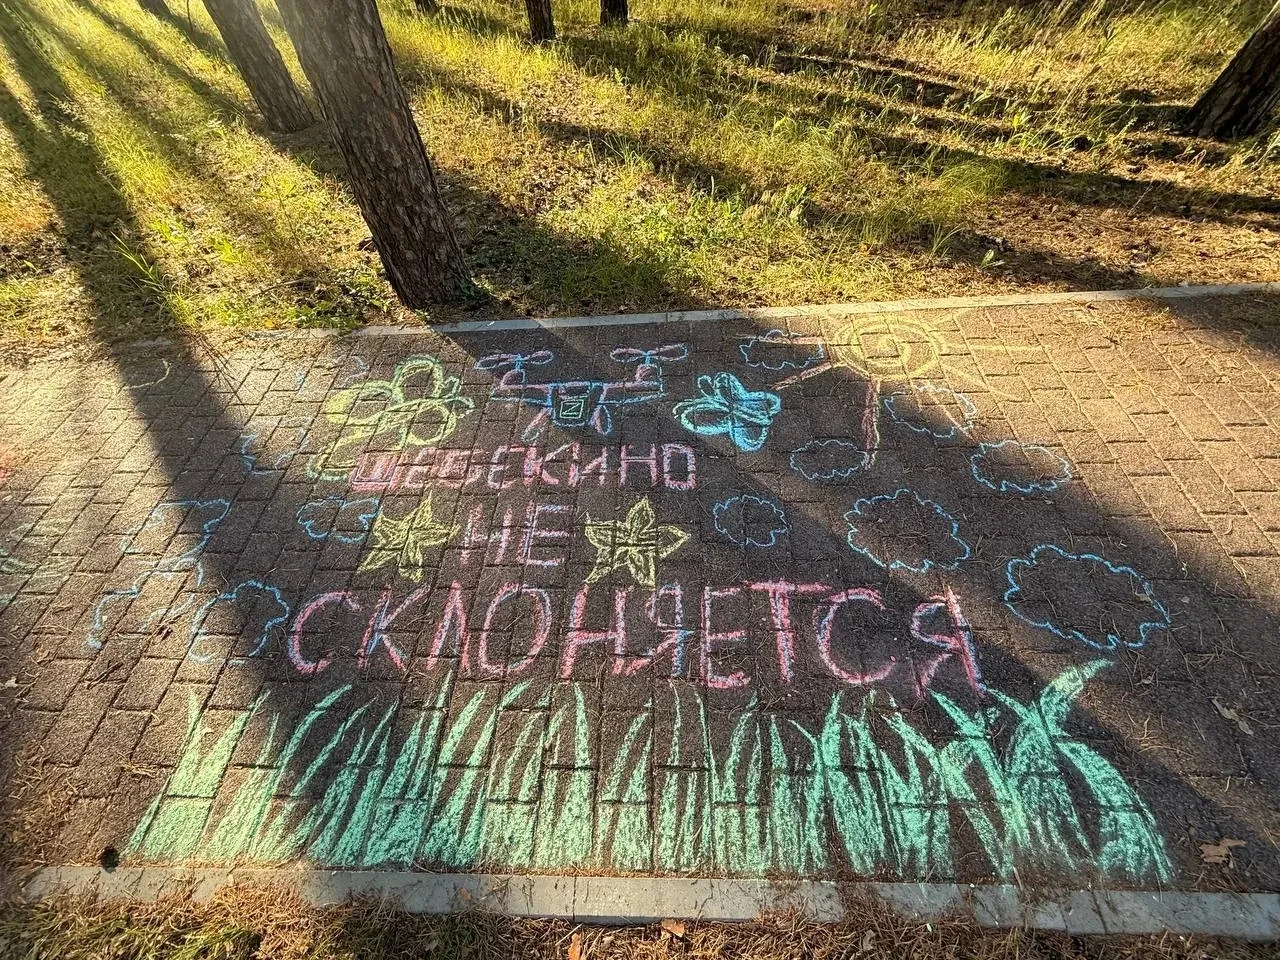 Z
ШЕБЕКИНО
НЕ
СКЛОНЯЕТСЯ